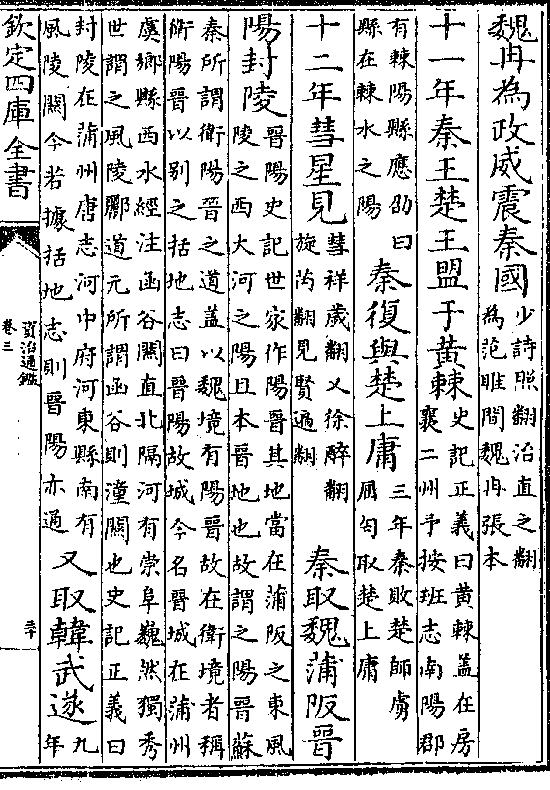 魏冉為政威震秦國
少詩照翻治直之翻
為范睢間魏冉張本
十一年秦王楚王盟于黃棘
史記正義曰黃棘蓋在房
襄二州予按班志南陽郡
有棘陽縣應劭曰
縣在棘水之陽
秦復與楚上庸
三年秦敗楚師虜
屈匄取楚上庸
十二年彗星見
彗祥歲翻又徐醉翻
旋芮翻見賢遍翻
秦取魏蒲阪晉
陽封陵
晉陽史記世家作陽晉其地當在蒲阪之東風
陵之西大河之陽且本晉地也故謂之陽晉蘇
秦所謂衛陽晉之道蓋以魏境有陽晉故在衛境者稱
衛陽晉以别之括地志曰晉陽故城今名晉城在蒲州
虞鄉縣西水經注函谷關直北隔河有崇阜巍然獨秀
世謂之風陵酈道元所謂函谷則潼關也史記正義曰
封陵在蒲州唐志河中府河東縣南有
風陵關今若據括地志則晉陽亦通
又取韓武遂
九
年
欽定四庫全書
資治通鑑
卷三